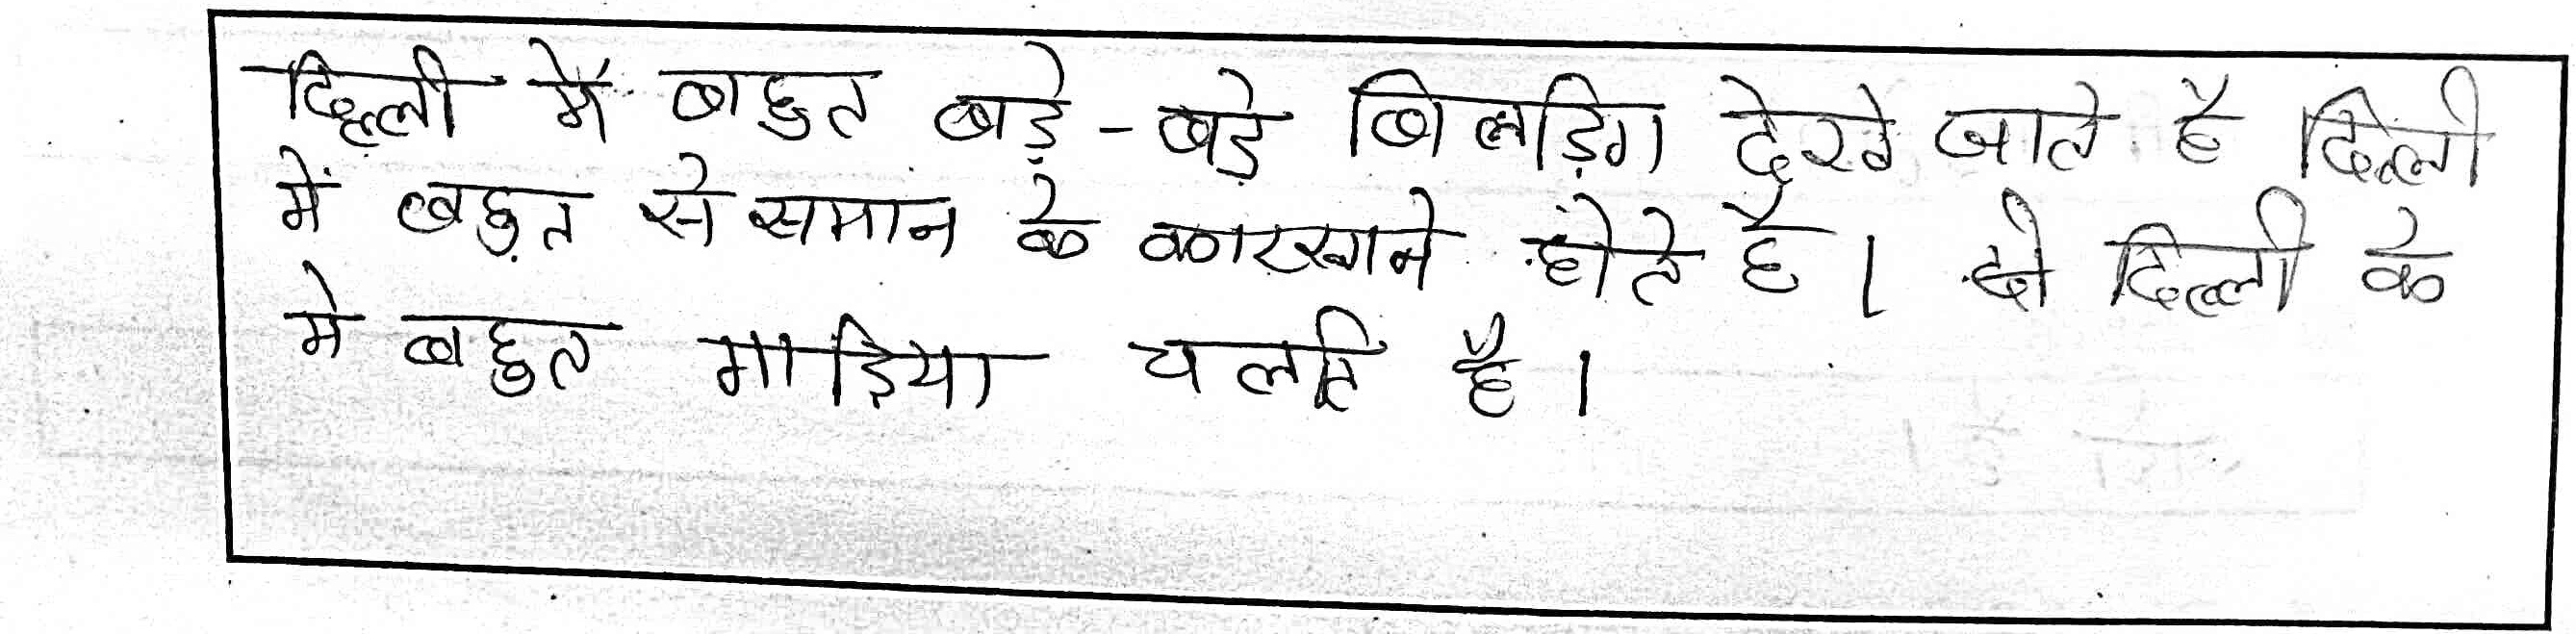 दिल्ली में बाहुत बड़े - बड़े बिलडिंग देखे जाते है दिल्ली
में बहुत से समान के कारखाने होते है। दिल्ली के
मे बहुत गाड़िया चलति है।